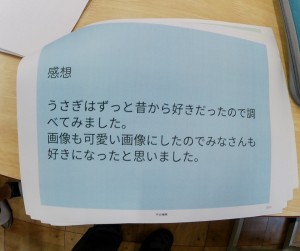 感想
うさぎはずっと昔から好きだったので調
べてみました。
画像も可愛い画像にしたのでみなさんも
好きになったと思いました。